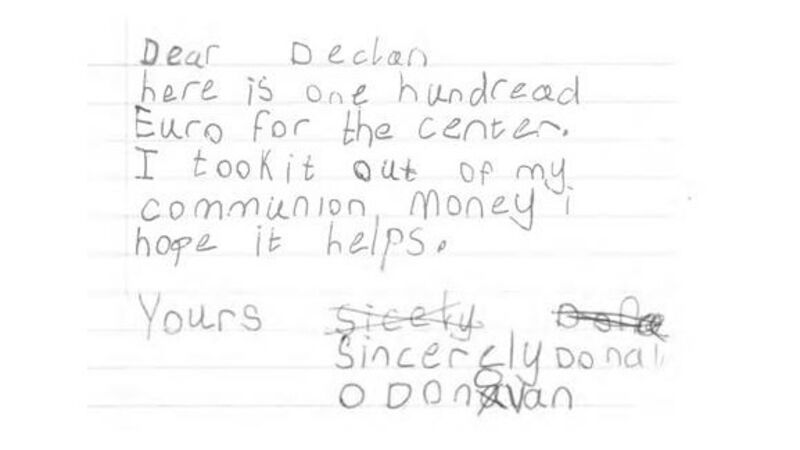 Dear Declan
here is one hundread
Euro for the center.
I took it out of my
communion money i
hope it helps.
Yours
Sincerely Donal
O Donovan